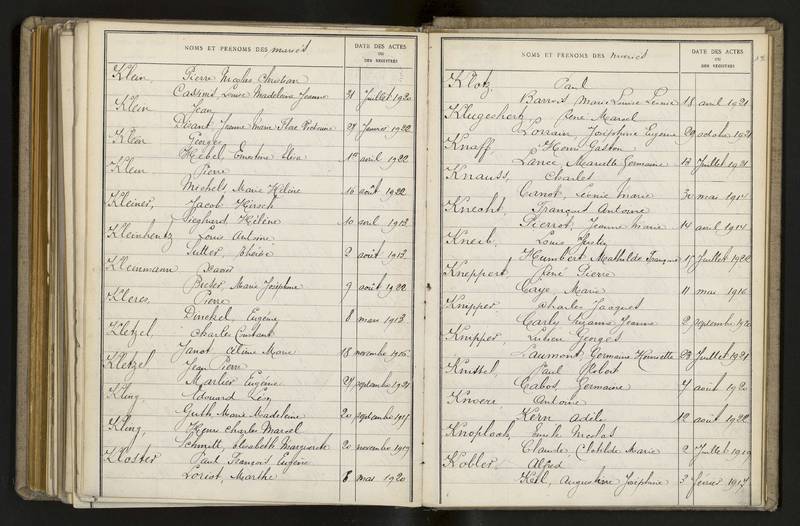 NOMS ET PRENOMS DES mariés
DATE DES ACTES
OU
DES REGISTRES
Klein Pierre Nicolas Christian
Cassin, Louise Madeleine Jeanne 31 Juillet 1920
Klein Jean
Jeanne Marie 28 Janvier 1922
Klein Georges
Hebel, Ernestine Elise 1er avril 1922
Klein Pierre
Michels, Marie Hélène 16 août 1922
Kleiner, Jacob Hirsch
Sieghard Hélène 10 avril 1913
Kleinhentz Louis Antoine
Sutter, Thérèse 2 août 1913
Kleinmann Xavier
Marie Joséphine 9 août 1922
Kleres, Pierre
Dinckel, Eugénie 8 mars 1913
Kletzel, Charles Constant
Janot Marie 18 novembre 1916
Kletzel Jean Pierre
Marlier Eugénie 24 septembre 1921
Kling, Edouard Léon
Guth Marie Madeleine 20 septembre 1917
Kling, Henri Charles Marcel
Schmitt, Elisabeth Marguerite 20 novembre 1919
Kloster Paul François Eugène
Loriot, Marthe 8 mai 1920
NOMS ET PRENOMS DES mariés
DATE DES ACTES
OU
DES REGISTRES
Klotz, Paul
Barrois Marie Louise Léonie 18 avril 1921
René Marcel
Lorrain, Joséphine Eugénie 29 octobre 1921
Knaff, Henri Gaston
Lance, Mariette Germaine 13 Juillet 1921
Knauss, Charles
Carnot, Léonie Marie 30 mai 1914
Knecht, François Antoine
Pierrot, Jeanne Marie 14 avril 1914
Kneib, Louis Justin
Humbert Mathilde Françoise 15 Juillet 1922
Kneppert, René Pierre
Caye Marie 11 mai 1916
Knipper, Charles Jacques
Carly Suzanne Jeanne 2 septembre 1920
Knipper, Lucien Georges
Laumont, Germaine Henriette 23 Juillet 1921
Knittel, Paul Robert
Cabos, Germaine 7 août 1920
Antoine
Kern Adèle 12 août 1922
Knoploch, Emile Nicolas
Claude, Clotilde Marie 2 Juillet 1919
Kobler, Alfred
Keil, Augustine Joséphine 3 février 1917